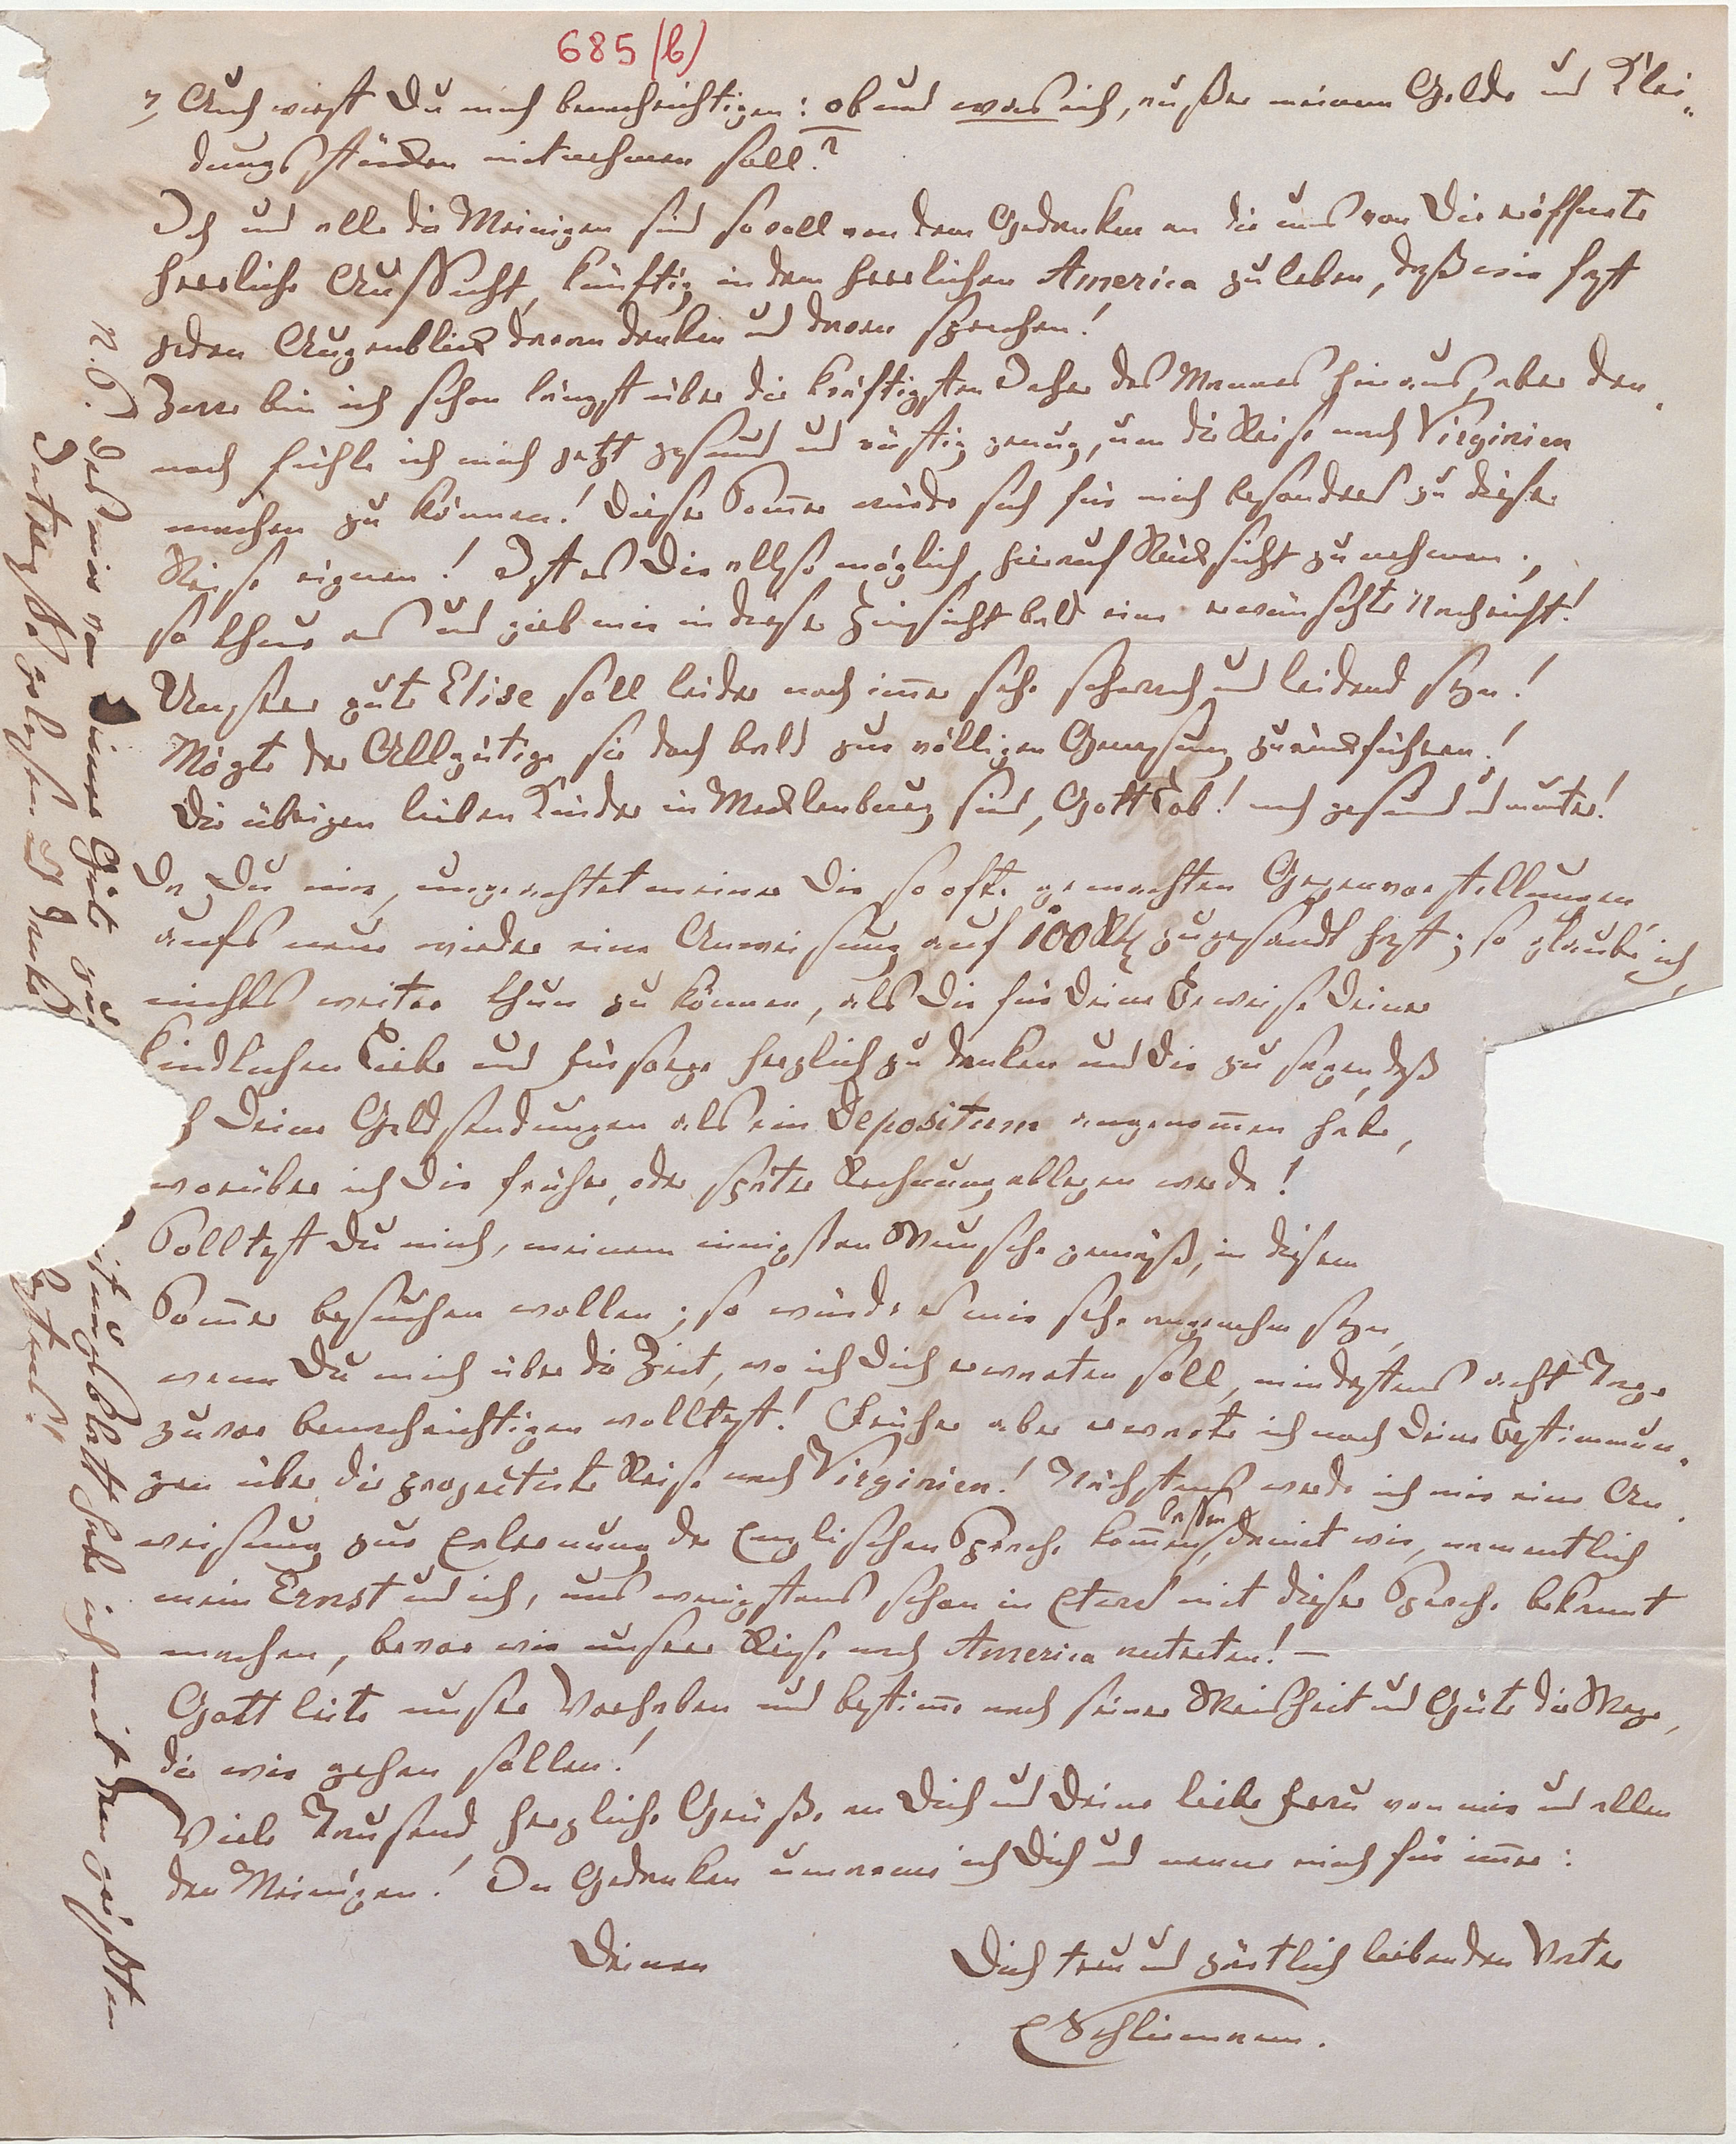 685 (b)
7, Auch wirst Du mich benachrichtigen: ob und was ich, außer meinem Gelde und Klei-
dungsstücken mitnehmen soll?
Ich und alle die Meinigen sind so voll von dem Gedanken an die uns von Dir eröffnete
herrliche Aussicht, künftig in dem herrlichen America zu leben, daß wir fast
jeden Augenblick daran denken und davon sprechen!
Zwar bin ich schon längst über die kräftigsten Jahre des Mannes hinaus, aber den-
noch fühle ich mich jetzt gesund und rüstig genug, um die Reise nach Virginien
machen zu können! Dieser Som̅er würde sich für mich besonders zu dieser
Reise eignen! Ist es Dir also möglich, hierauf Rücksicht zu nehmen;
so thue es und gieb mir in dieser Hinsicht bald eine erwünschte Nachricht!
Unsere gute Elise soll leider noch im̅er sehr schwach und leidend seyn!
Mögte der Allgütige sie doch bald zur völligen Genesung zurückführen!
Die übrigen lieben Kinder in Mecklenburg sind, Gott Lob! noch gesund und munter!
Da Du mir, ungeachtet meiner Dir so oft gemachten Gegenvorstellungen,
aufs neue wieder eine Anweisung auf 100 Rh zugesandt hast; so glaube ich
nichts weiter thun zu können, als Dir für Deine Beweise Deiner
kindlichen Liebe und Fürsorge herzlich zu danken und Dir zu sagen, daß
h Deine Geldsendungen als ein Depositum angenom̅en habe,
worüber ich Dir früher, oder später Rechnung ablegen werde!
Solltest Du mich, meinem innigsten Wunsche gemäß, in diesem
Som̅er besuchen wollen; so würde es mir sehr angenehm seyn,
wenn Du mich über die Zeit, wo ich Dich erwarten soll, mindestens acht Tage
zuvor benachrichtigen wolltest! Früher aber erwarte ich noch Deine Bestimmun-
gen über die projectirte Reise nach Virginien! Nächstens werde ich mir eine An-
weisung zur Erlernung der Englischen Sprache kom̅en lassen, damit wir, namentlich
mein Ernst und ich, uns wenigstens schon in Etwas mit dieser Sprache bekannt
machen, bevor wir unsere Reise nach America antreten! –
Gott leite unser Vorhaben und bestim̅e nach seiner Weisheit und Güte die Wege,
die wir gehen sollen!
Viele Tausend herzliche Grüße an Dich und Deine liebe Frau von mir und allen
den Meinigen! In Gedanken umarme ich Dich und nenne mich für im̅er:
Deinen
Dich treu und zärtlich liebenden Vater
E Schliemann.
N.S. Das mir von Deiner Güte zu
itungsblatt habe ich mit dem größten
Interesse gelesen und danke
stens.